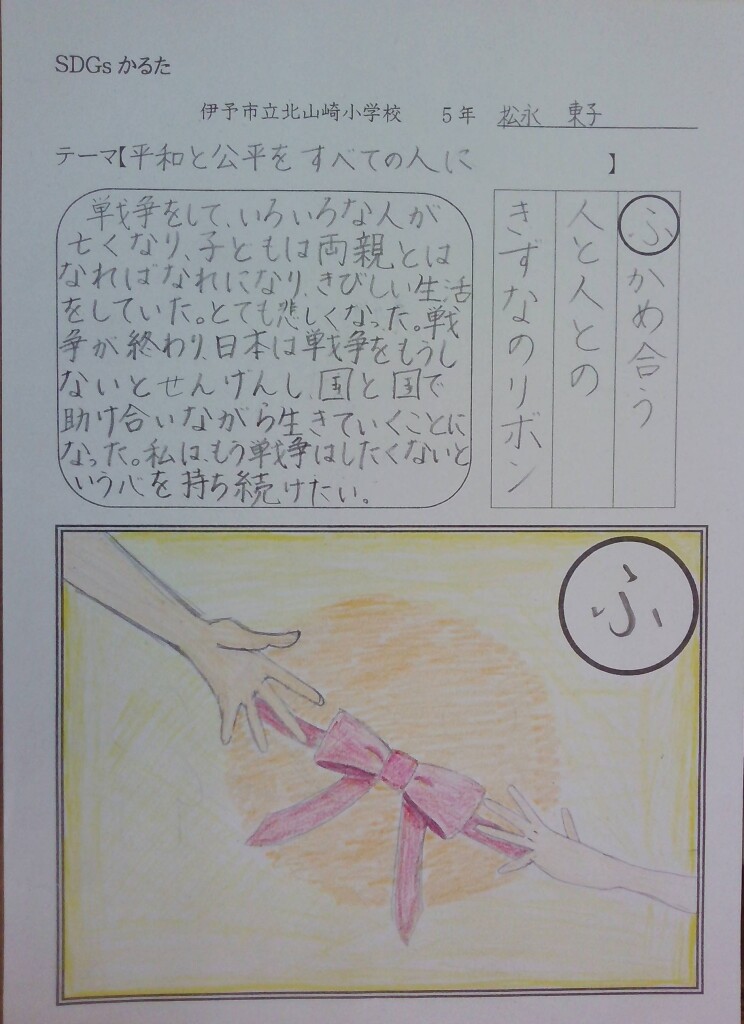 SDGsかるた
伊予市立北山崎小学校 5年 松永 東子
テーマ【平和と公平をすべての人に】
戦争をして、いろいろな人が
亡くなり、子どもは両親とは
なればなれになり、きびしい生活
をしていた。とても悲しくなった。戦
争が終わり、日本は戦争をもうし
ないとせんげんし、国と国で
助け合いながら生きていくことに
なった。私は、もう戦争はしたくないと
いう心を持ち続けたい。
ふかめ合う
人と人との
きずなのリボン
ふ